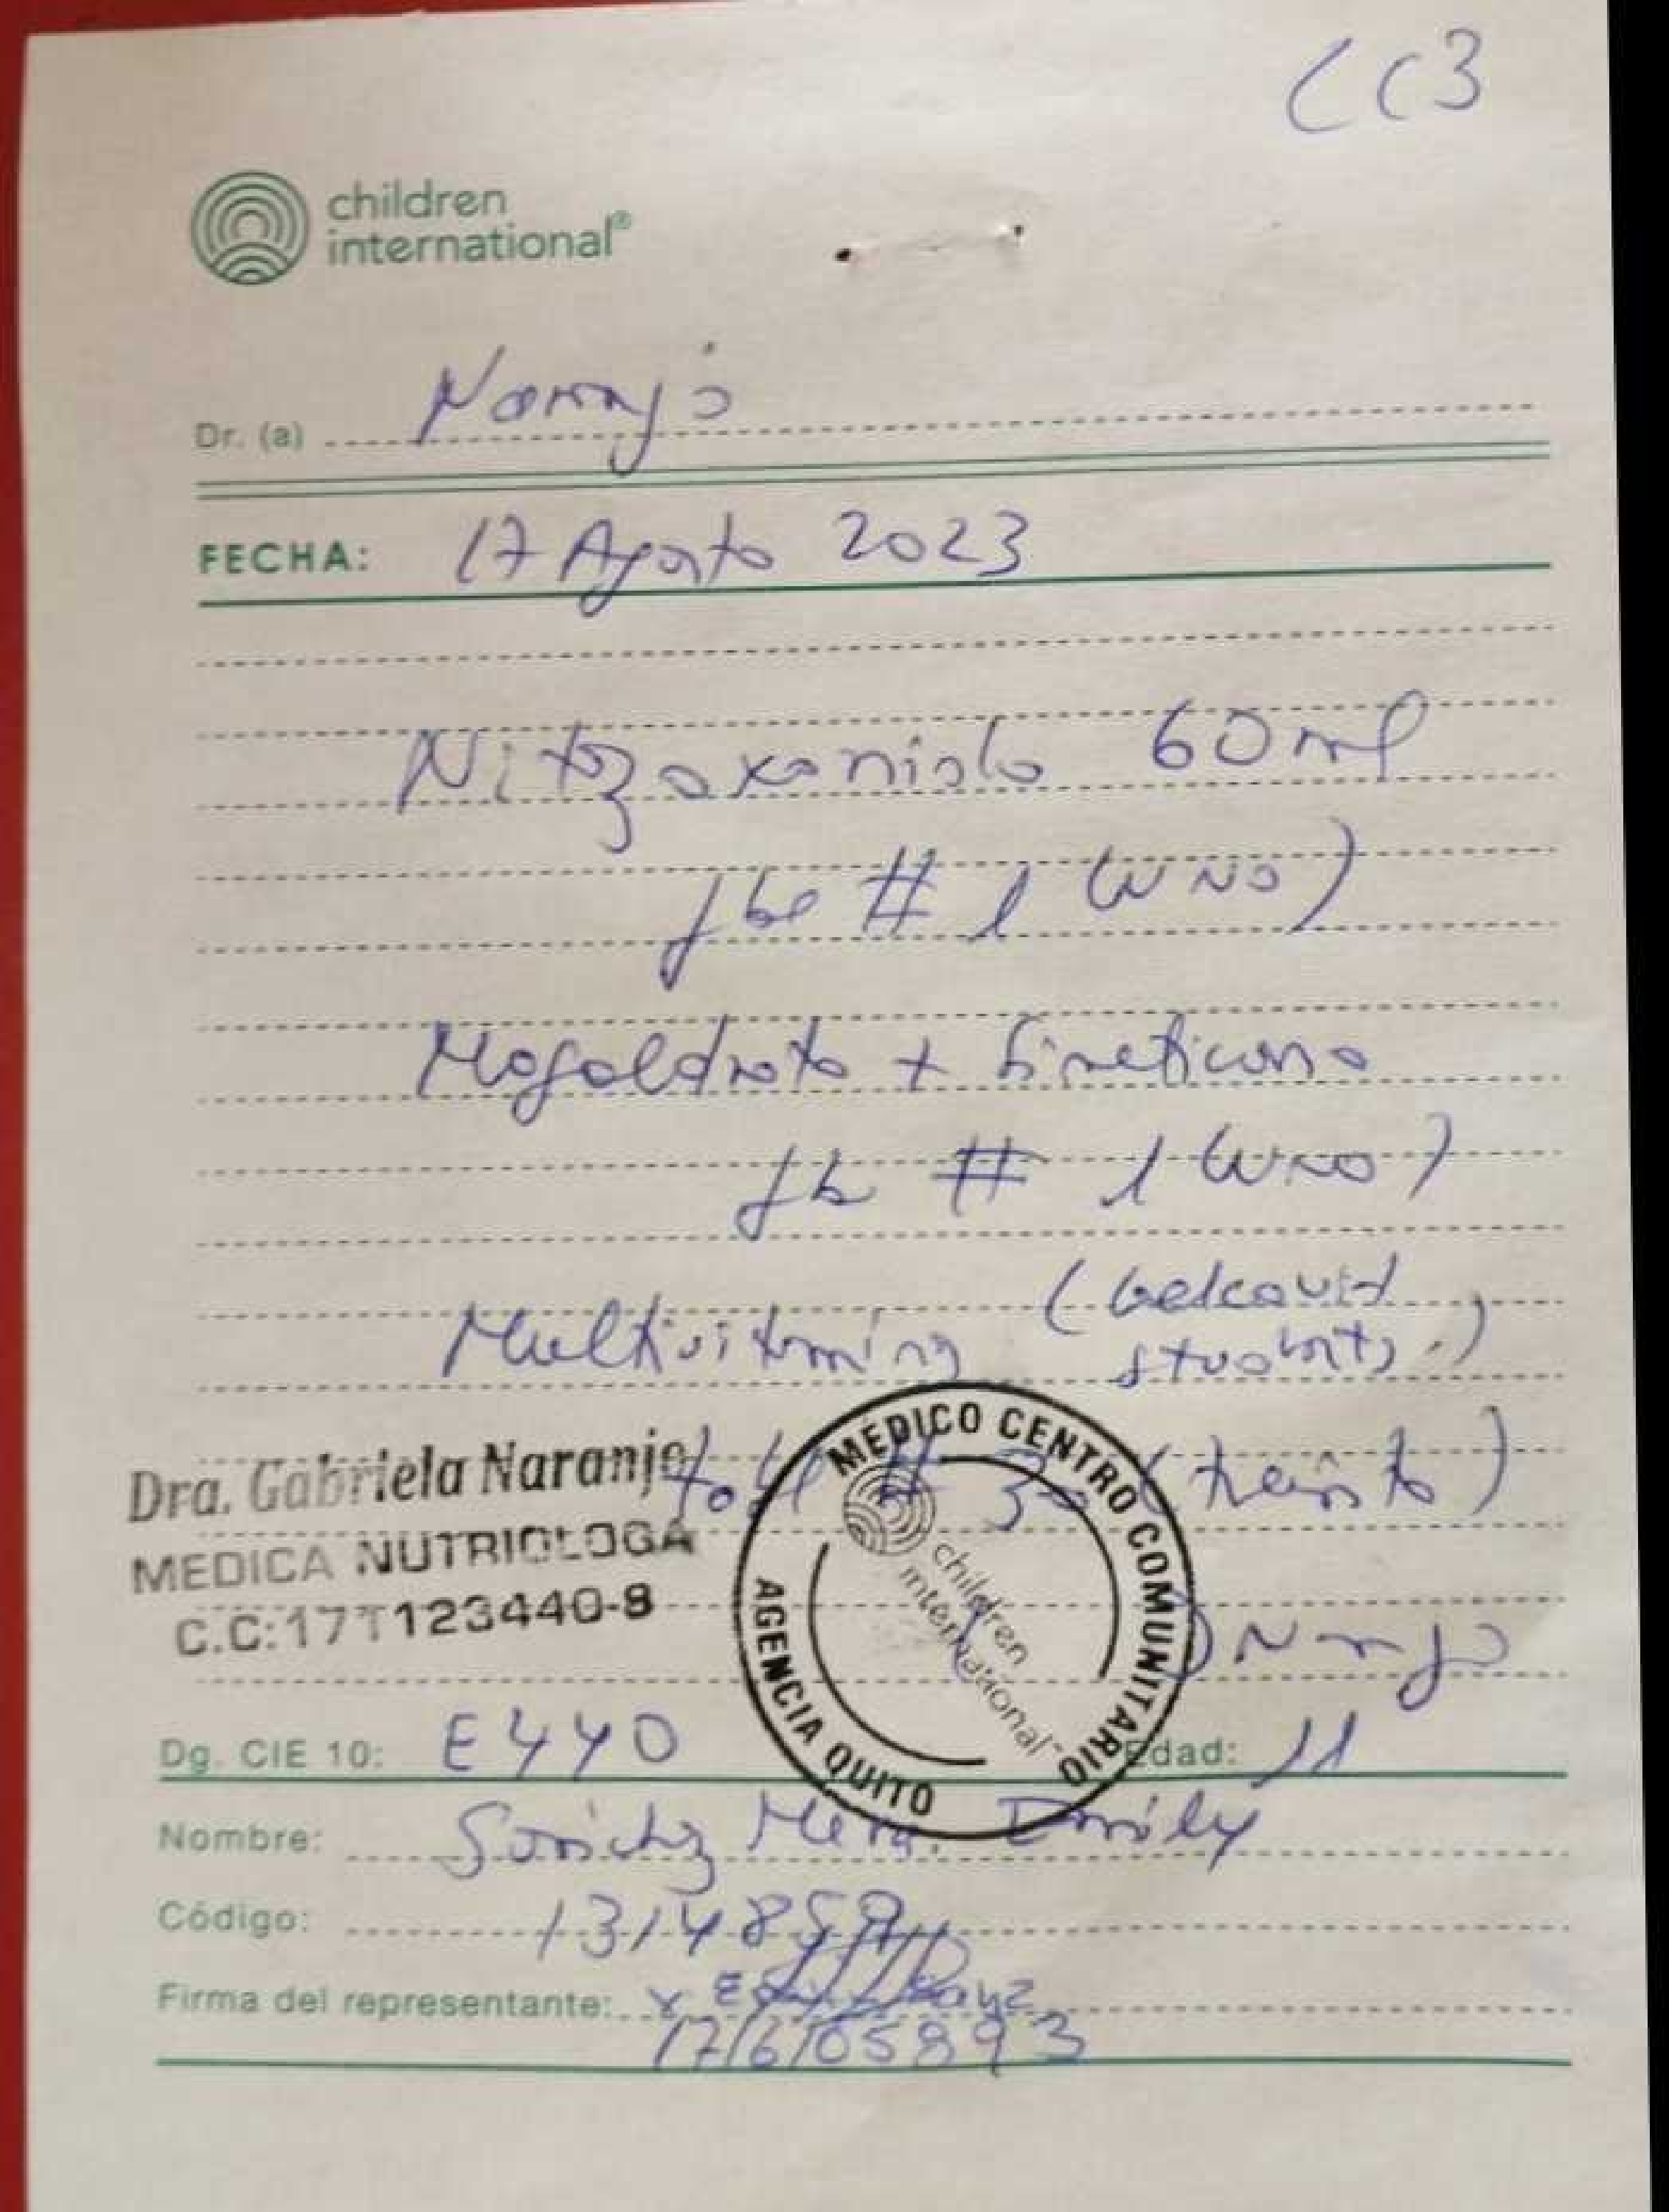 CC3
children
international®
Dr. (a) Naranjo
FECHA: 17 Agosto 2023
Nitazoxanida 60ml
fco # 1 (UNO)
Magaldrato + Simeticona
fco # 1 (UNO)
Multivitaminas (
)
# 30 (treinta)
Dra. Gabriela Naranjo
MEDICA NUTRIOLOGA
C.C:17T123440-8
MEDICO CENTRO COMUNITARIO
children
international
AGENCIA QUITO
Naranjo
Dg. CIE 10: E440 Edad: 11
Nombre: Sánchez Mera Emily
Código:
Firma del representante: